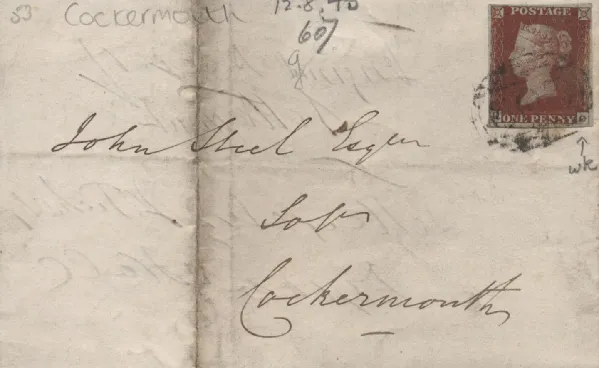 53 Cockermouth
12.8.
607
g
POSTAGE
ONE PENNY
wk
John Steel Esqur
Cockermouth